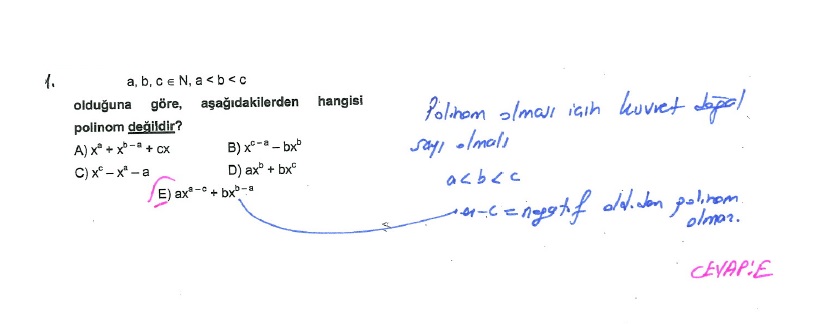 1. a, b, c ∈ N, a < b < c
olduğuna göre, aşağıdakilerden hangisi
polinom değildir?
A) xᵃ + xᵇ⁻ᵃ + cx B) xᶜ⁻ᵃ – bxᵇ
C) xᶜ – xᵃ – a D) axᵇ + bxᶜ
E) axᵃ⁻ᶜ + bxᵇ⁻ᵃ
Polinom olması için kuvvet doğal
sayı olmalı
a<b<c
a-c = negatif old.dan polinom
olmaz.
CEVAP:E